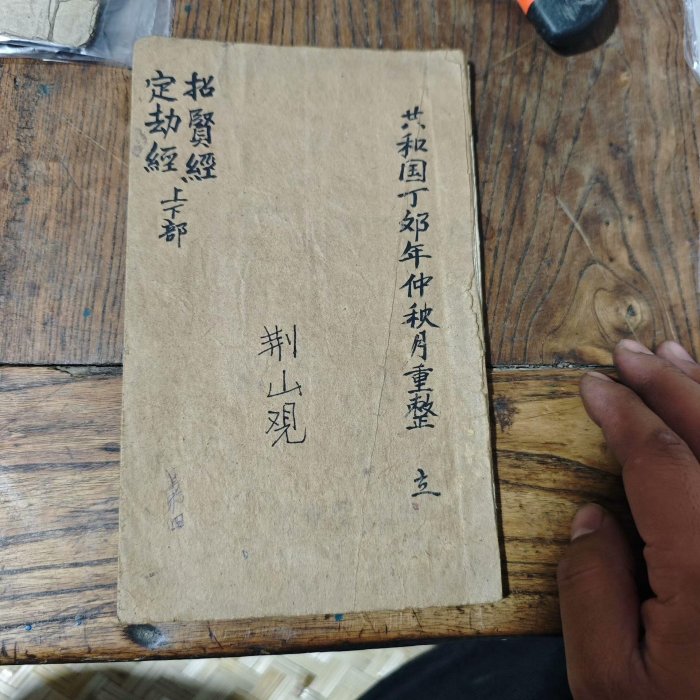 共和国丁卯年仲秋月重整 立
荆山观
招賢經
定劫經上下部